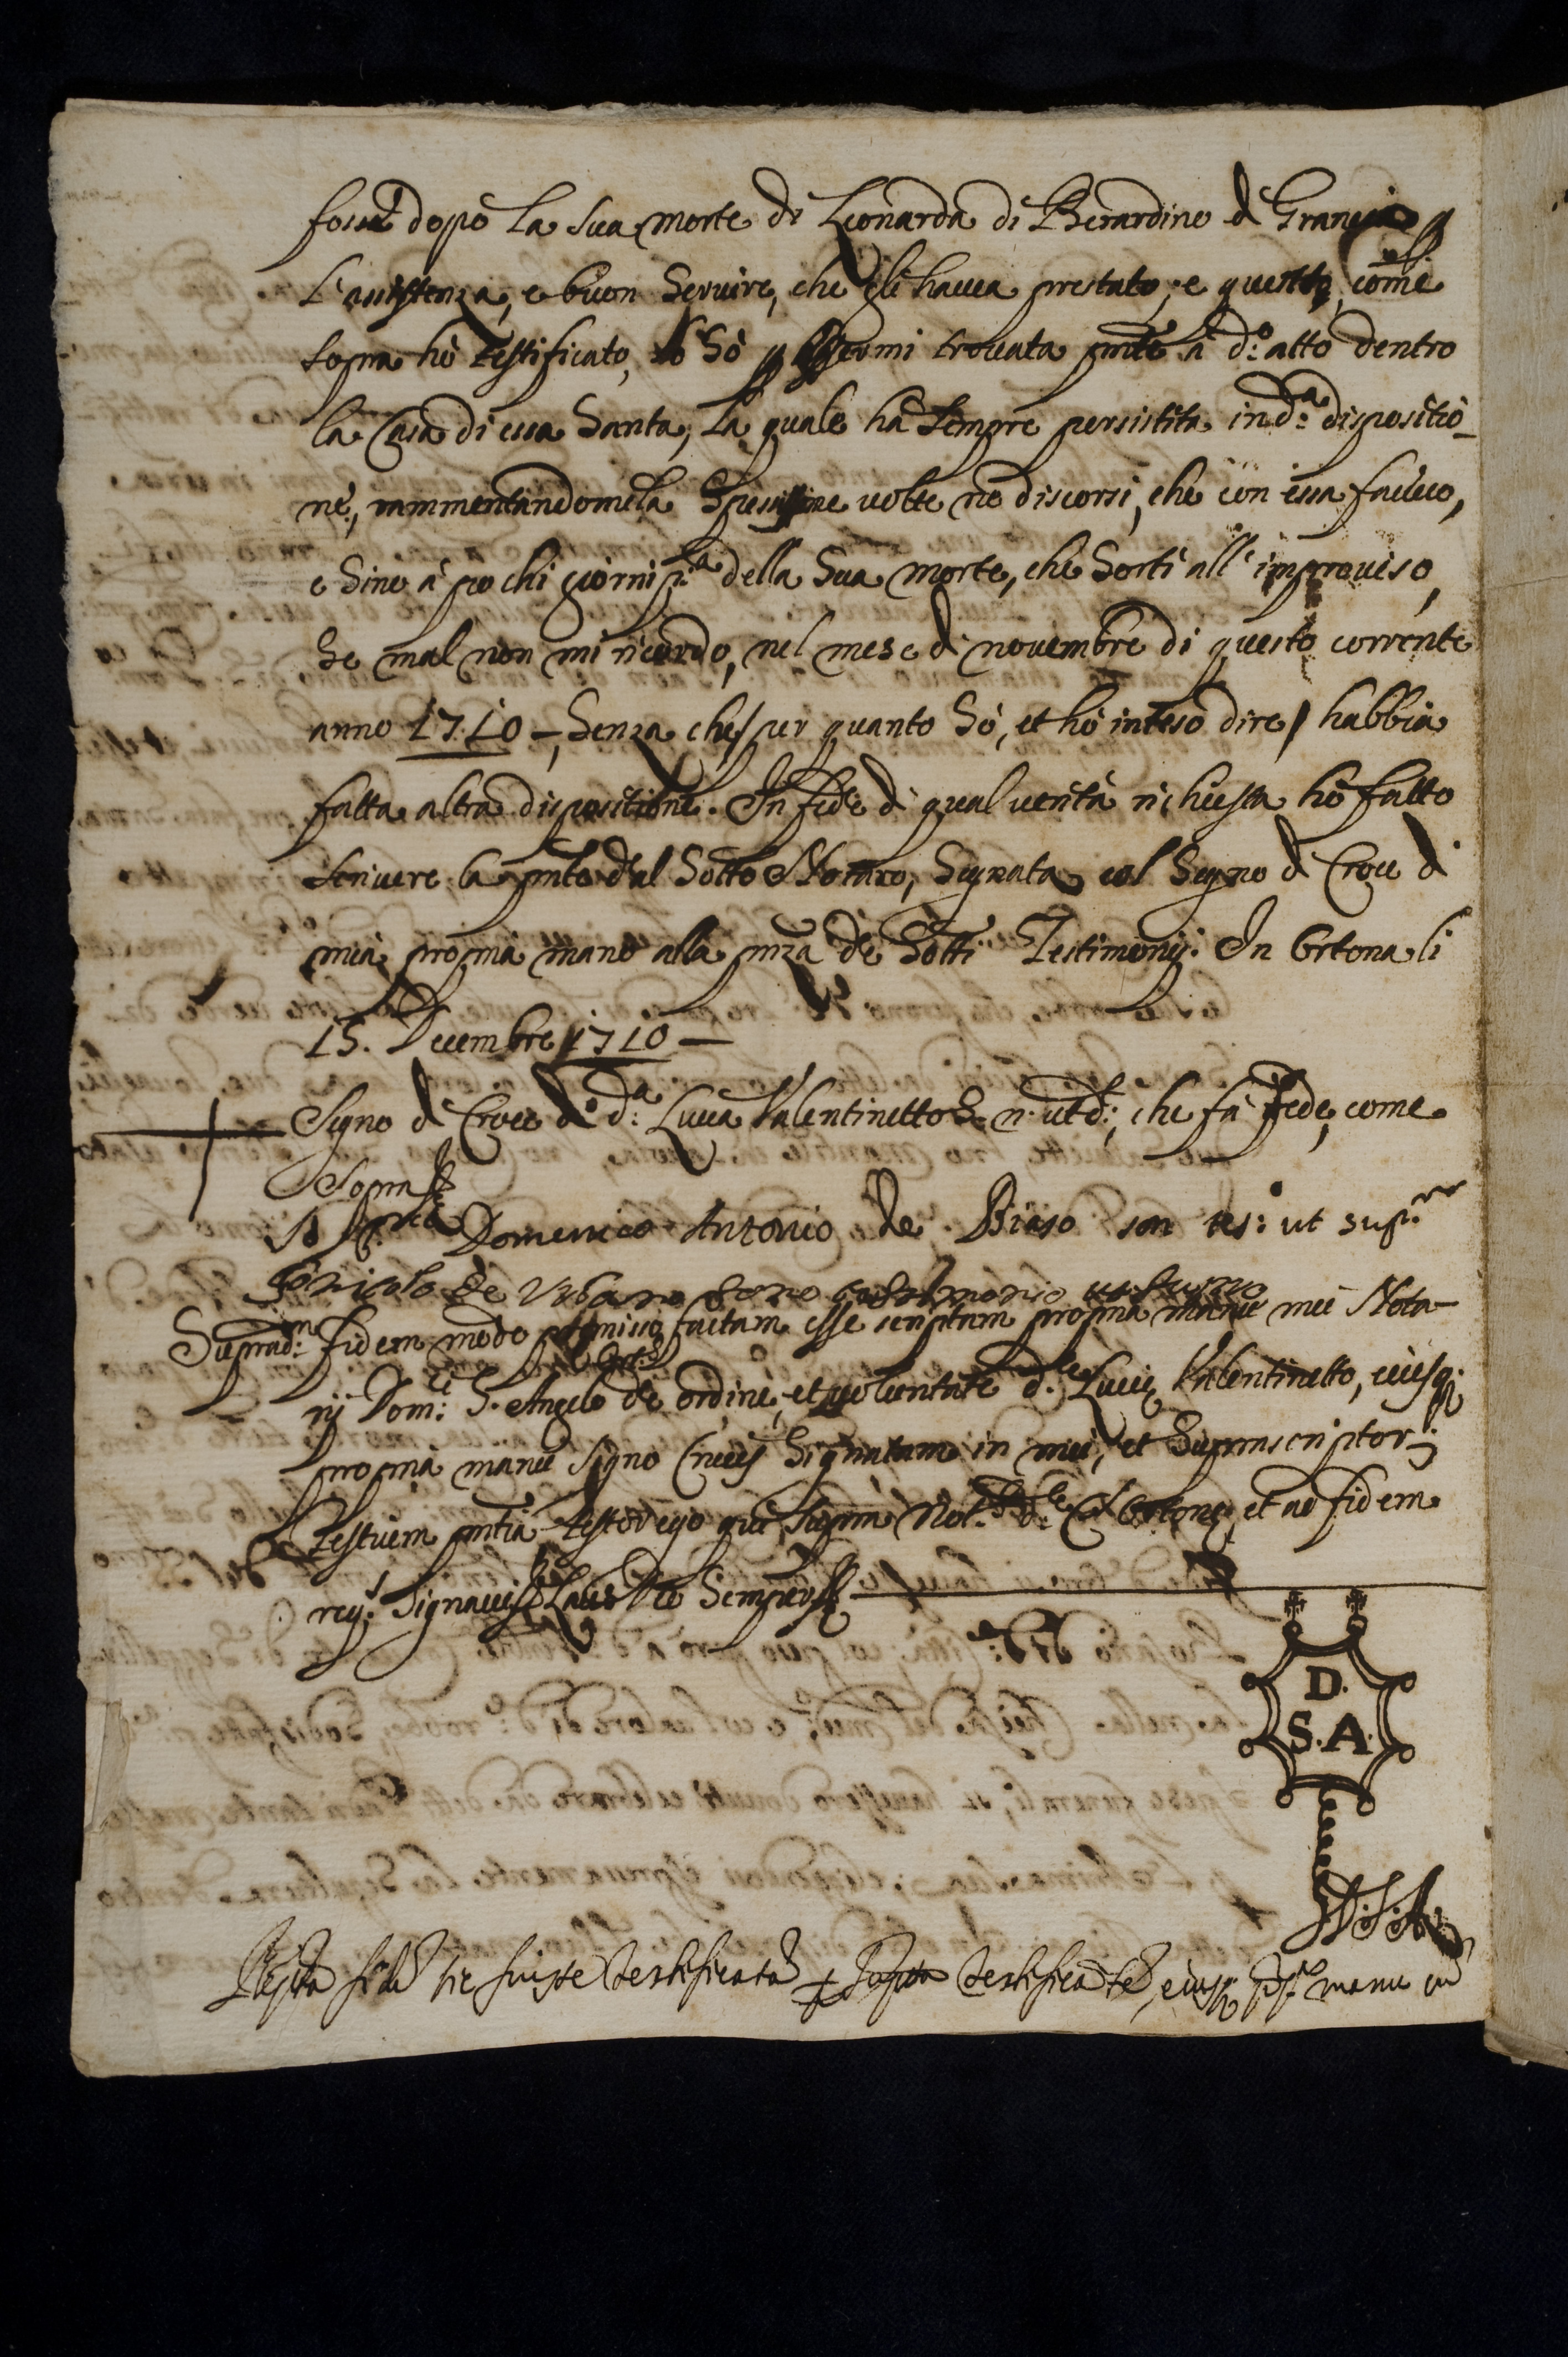 dopò la sua morte di Leonarda di Berardino d
L'assistenza, e buon servire, che gli havea prestato; e questo, come
sopra hò testificato, lo sò p essermi trovata pnte à d:º atto dentro
la Casa di essa Santa, La quale hà sempre persistita in d:ª dispositio-
ne, rammentandomela spessissime volte ne discorsi, che con essa facevo,
e sino à pochi giorni p:ª della sua morte, che sortì all'improviso,
se mal non mi ricordo, nel mese di novembre di questo corrente
anno 1710 -, senza che/per quanto sò, et hò inteso dire/ habbia
fatta altra dispositione. In fede di qual verità richiesta hò fatto
scrivere la pnte dal Sotto Notaro, segnata col segno di Croce di
mia propria mano alla pnza de Sotti Testimonij. In Ortona li
15. Decembre 1710 -
Segno di Croce di d:ª Lucca Valentinetto che fà fede, come
Sopra
Domenico Antonio de Biaso son tes: ut supr
Nicola de Urbano sono testimonio ut supra
Supradm fidem modo pmisso factam esse scriptam propria manu mei Nota-
rij Dom:ci S. Angelo de Ort: ordine, et voluntate d:æ Luciæ Valentinetto, eiusq;
propria manu signo Crucis signatam in mei, et suprascriptor:
Testium pntia testor ego qui supra Not: Ortonæ, et ad fidem
reqs signavi Laus Deo Semper
D.
S. A.
D. S. A.
fidem hic fuisse testificatam p testificatem, eiusq manu